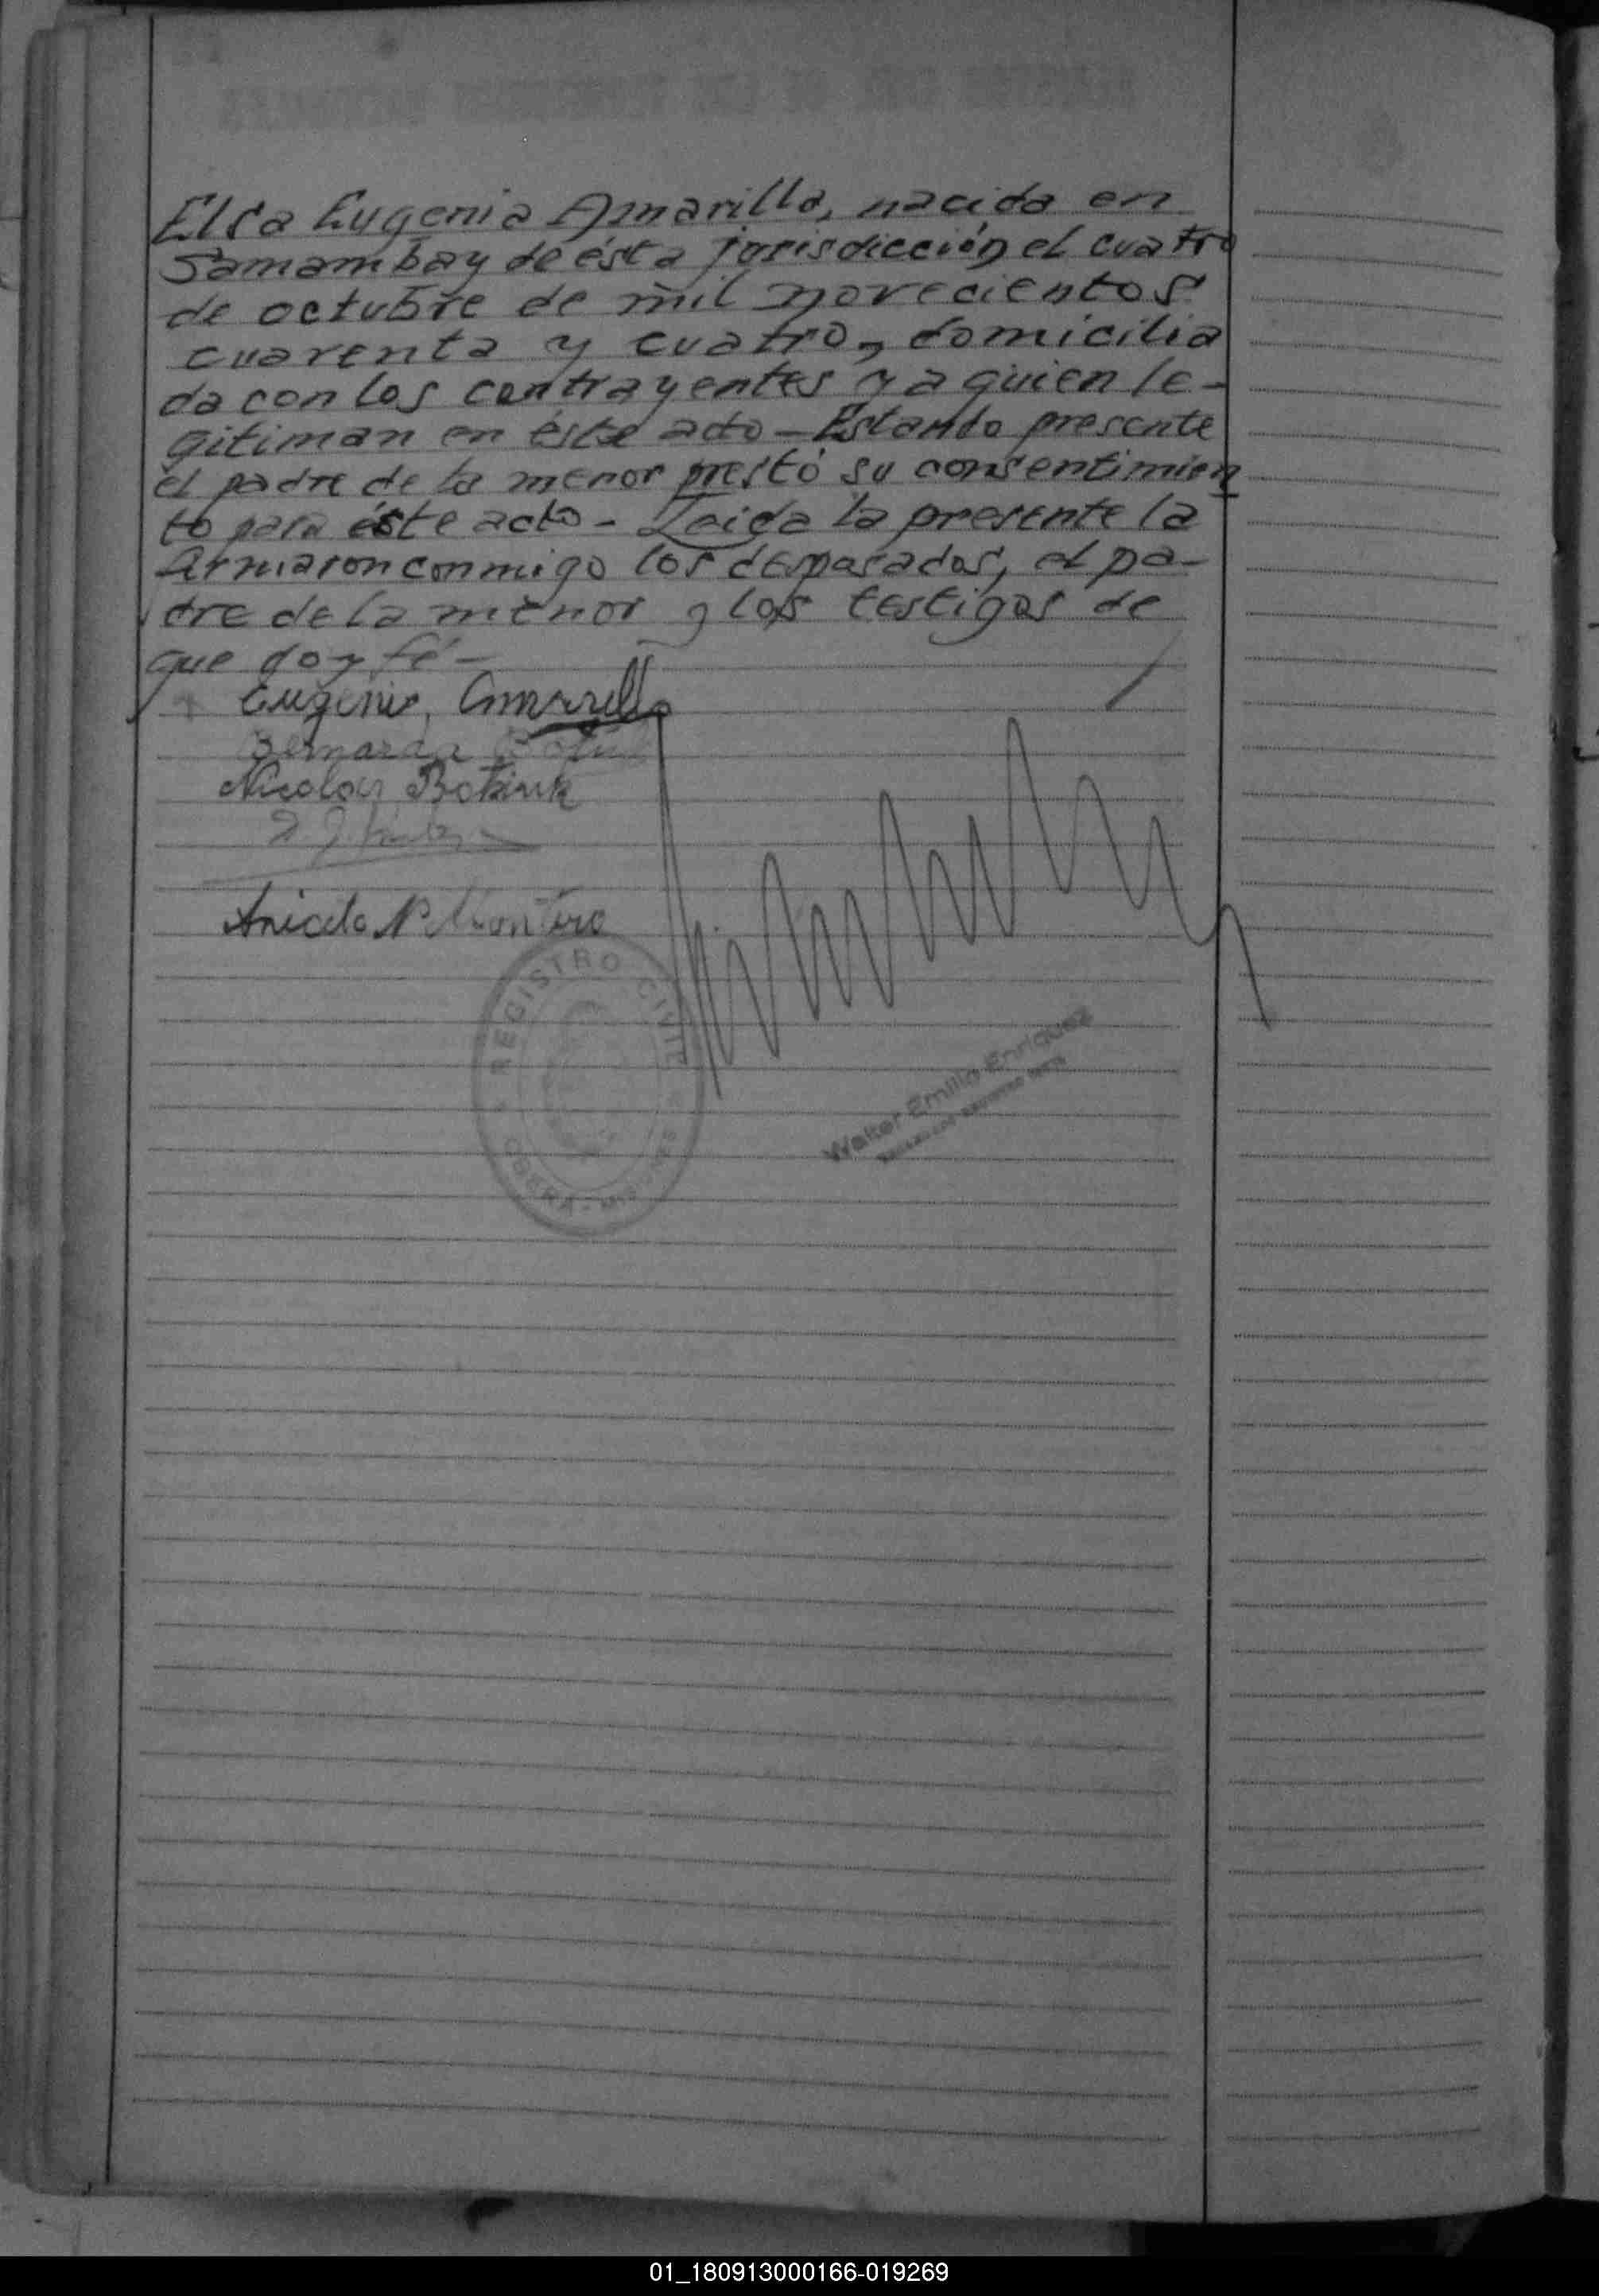 Elsa Eugenia Amarilla, nacida en
Samambay de ésta jurisdicción el cuatro
de octubre de mil novecientos
cuarenta y cuatro, domicilia
da con los contrayentes y a quien le-
gitiman en éste acto - Estando presente
el padre de la menor prestó su consentimien
to para éste acto - Leida la presente la
firmaron conmigo los desposados, el pa-
dre de la menor y los testigos de
que doy fé -
Eugenio Amarilla
Bernarda
Nicolas
Aniceto N Montero
REGISTRO CIVIL
OBERA - MISIONES
Walter Emilio Enriquez
01_180913000166-019269